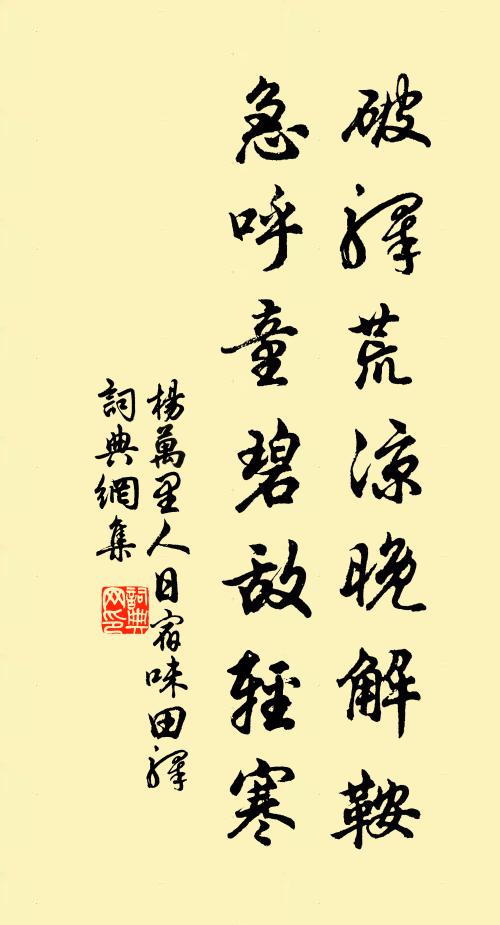 破驛荒涼晚解鞍
急呼童碧敌輕寒
楊萬里人日宿味田驛
詞典網集
詞典网印